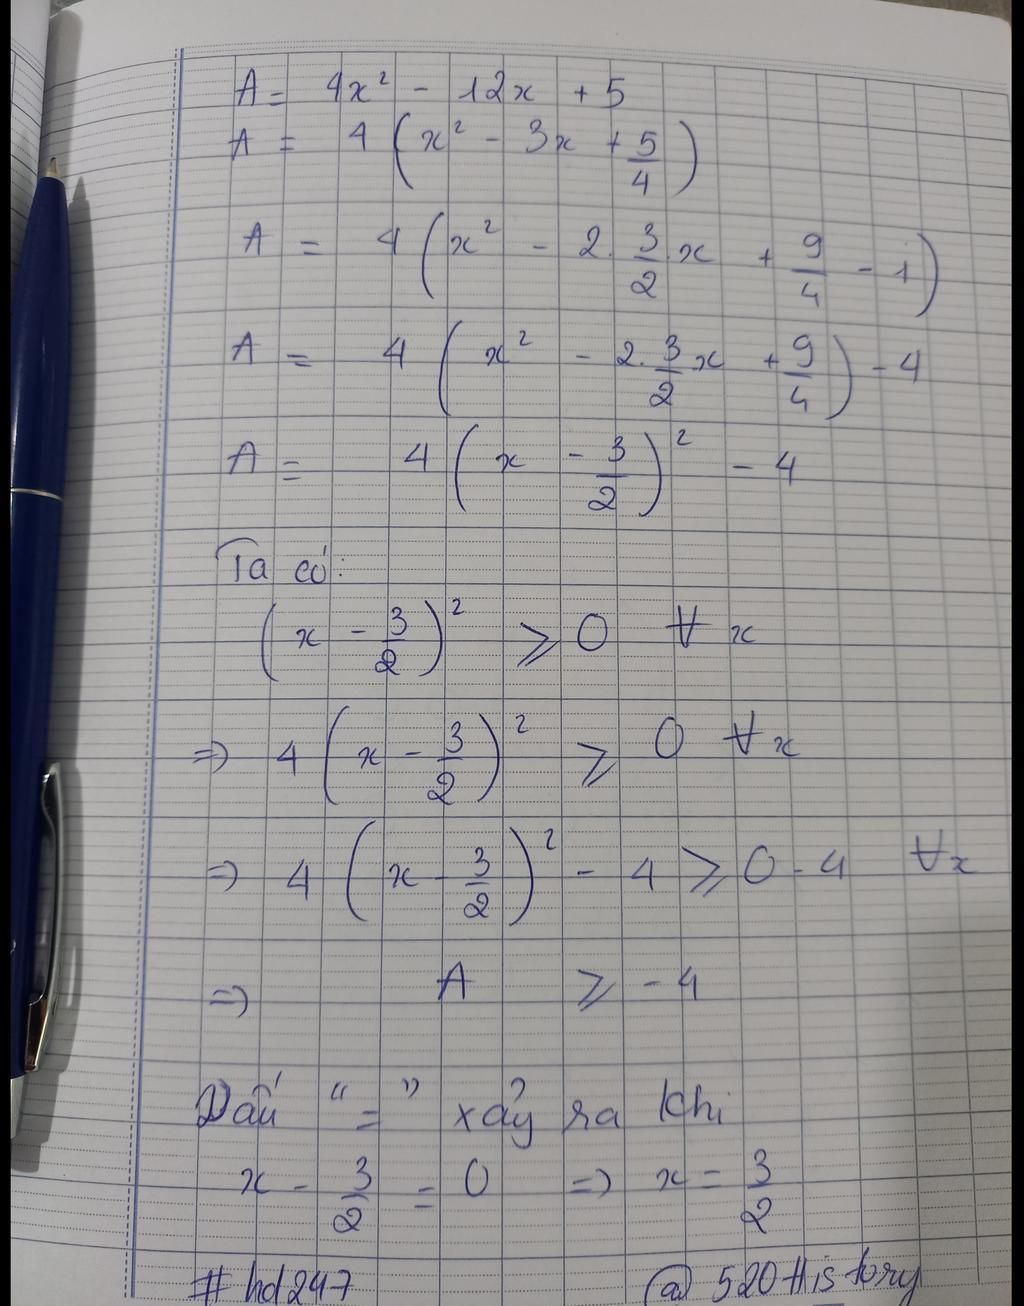 A = 4x² - 12x + 5
A = 4 (x² - 3x + 5/4)
A = 4 (x² - 2. 3/2 x + 9/4 - 1)
A = 4 (x² - 2. 3/2 x + 9/4) - 4
A = 4 (x - 3/2)² - 4
Ta có:
(x - 3/2)² ⩾ 0 ∀ x
=> 4 (x - 3/2)² ⩾ 0 ∀x
=> 4 (x - 3/2)² - 4 ⩾ 0 - 4 ∀x
=> A ⩾ - 4
Dấu “=” xảy ra khi
x - 3/2 = 0 => x = 3/2
# hd247 @ 520 History